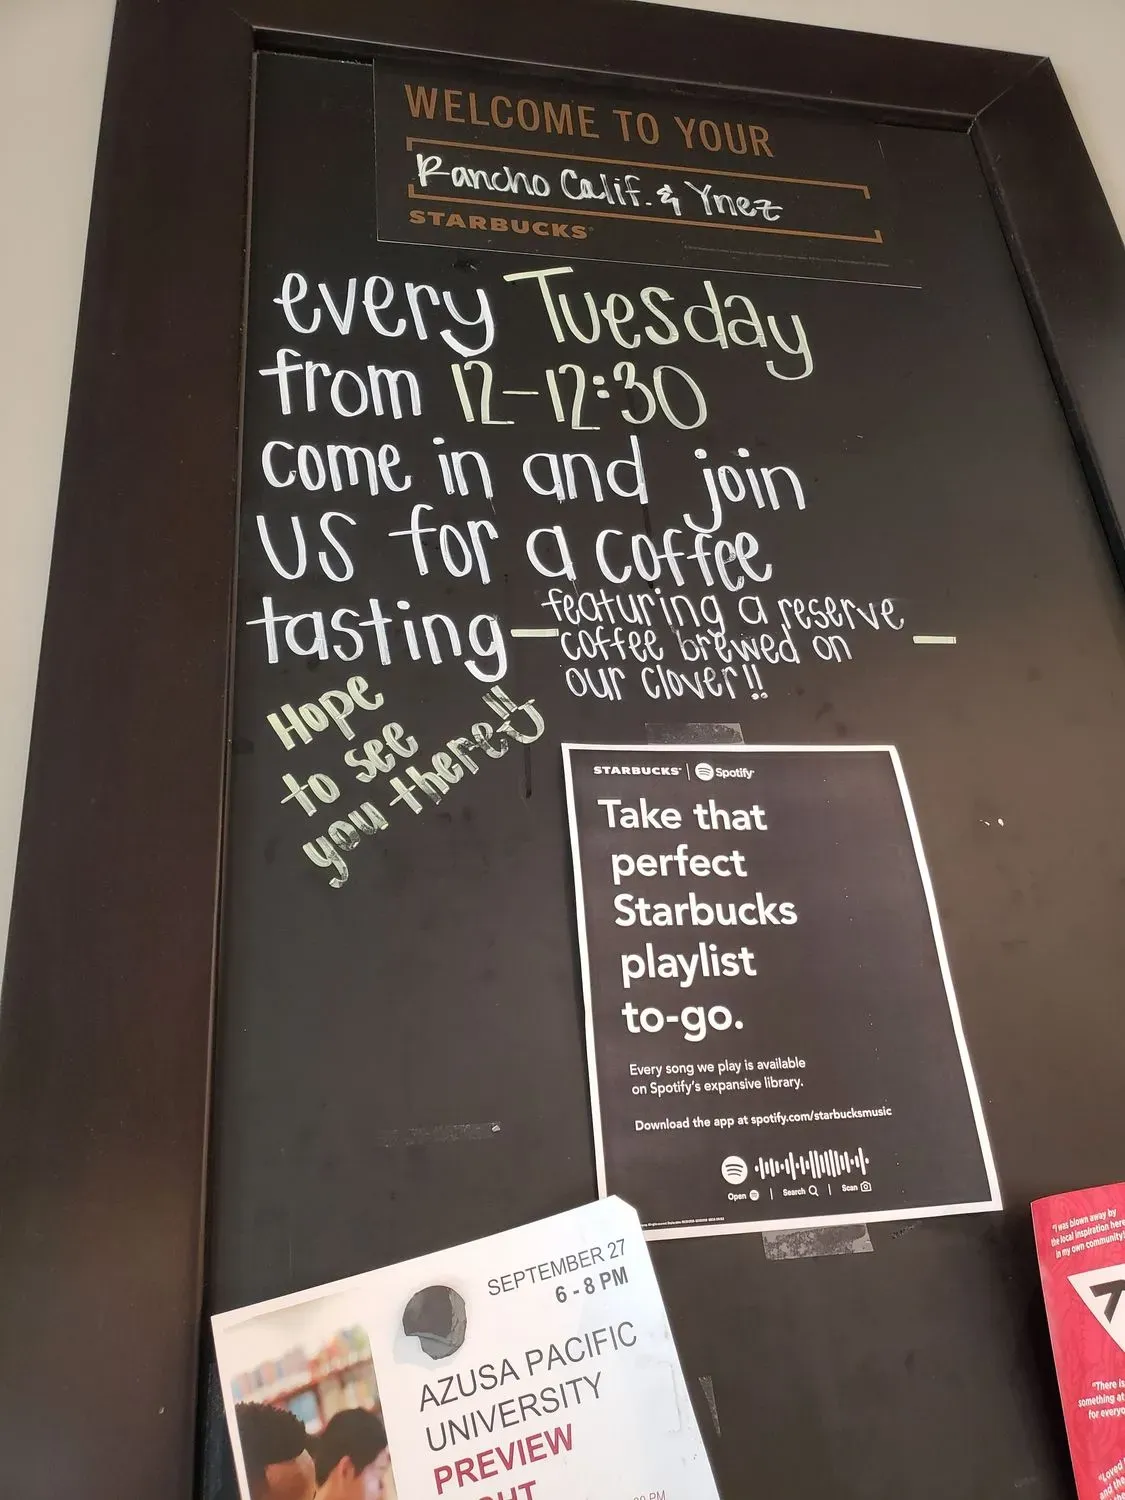 WELCOME TO YOUR
Rancho Calif. & Ynez
STARBUCKS
every Tuesday
from 12-12:30
come in and join
us for a coffee
tasting—
featuring a reserve
coffee brewed on
our clover!!
—
Hope
to see
you there!!
STARBUCKS | Spotify
Take that
perfect
Starbucks
playlist
to-go.
Every song we play is available
on Spotify's expansive library.
Download the app at spotify.com/starbucksmusic
Open | Search | Scan
SEPTEMBER 27
6 - 8 PM
AZUSA PACIFIC
UNIVERSITY
PREVIEW
"I was blown away by
the local inspiration here
in my own community
"There is
something at
for everyo
"Loved
and the